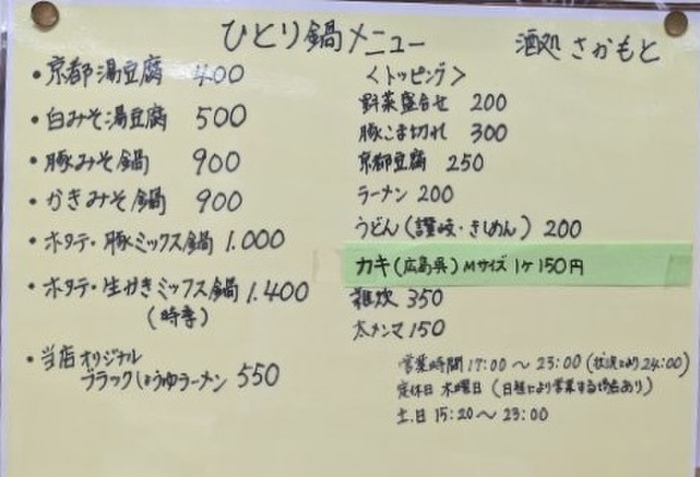 ひとり鍋メニュー
酒処 さかもと
・京都湯豆腐 400
・白みそ湯豆腐 500
・豚みそ鍋 900
・かきみそ鍋 900
・ホタテ・豚ミックス鍋 1.000
・ホタテ・生かきミックス鍋 1.400
(時季)
・当店オリジナル
ブラックしょうゆラーメン 550
<トッピング>
野菜盛合せ 200
豚こま切れ 300
京都豆腐 250
ラーメン 200
うどん(讃岐・きしめん) 200
カキ(広島県) Mサイズ 1ケ 150円
雑炊 350
太メンマ 150
営業時間 17:00～23:00 (状況により24:00)
定休日 木曜日 (日程により営業する場合あり)
土.日 15:20～23:00